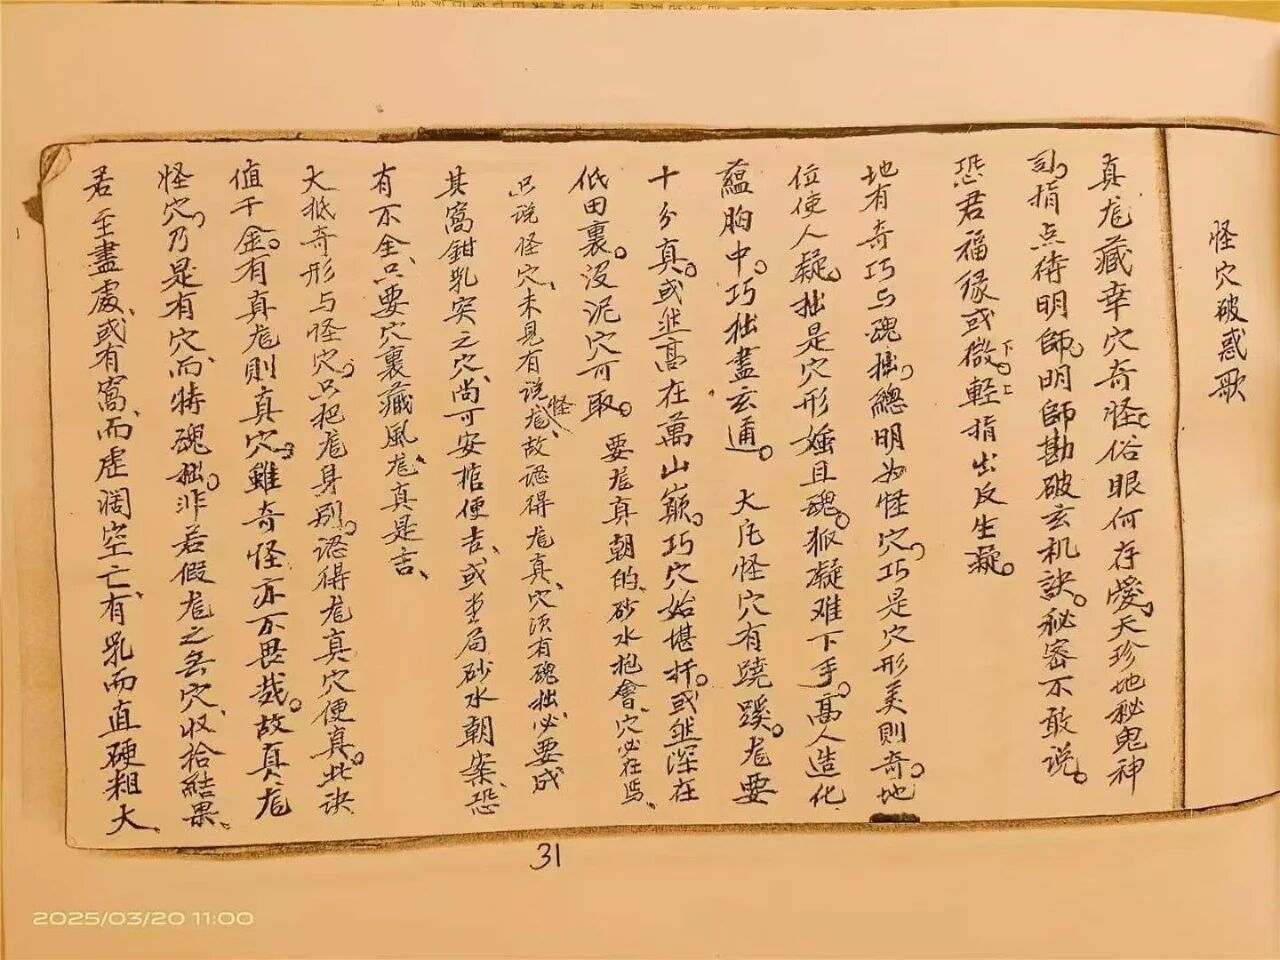 怪穴破惑歌
真龙藏幸穴奇怪。俗眼何存愛。天珍地秘鬼神
司。指点待明師。明師勘破玄机訣。秘密不敢说。
恐君福缘或微。輕指出反生凝。
下
上
地有奇巧与醜拙。總明为怪穴。巧是穴形美則奇。地
位使人凝。拙是穴形 且醜。狐凝难下手。高人造化
蘊胸中。巧拙盡玄通。 大凡怪穴有蹺蹊。龙要
十分真。或然高在萬山巔。巧穴始堪扦。或然深在
低田裏。没泥穴可取。 要龙真朝的、砂水抱會、穴必在焉、
只说怪穴、未見有说怪龙、故認得龙真、穴须有醜拙、必要成
其窩鉗乳突之穴、尚可安棺便吉、或坐局砂水朝案、恐
有不全、只要穴裏藏風、龙真是吉、
大抵奇形与怪穴。只把龙身别。認得龙真穴便真。此诀
值千金。有真龙則真穴。雖奇怪亦不畏哉。故真龙
怪穴、乃是有穴、而特醜拙。非若假龙之无穴、收拾結果、
若至盡處、或有窩、而虚濶空亡、有乳而直硬粗大、
31
2025/03/20 11:00